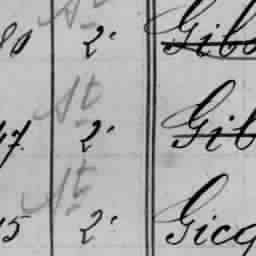 80 At 2. Gibs
47. At 2. Gib
15 At 2. Gicq